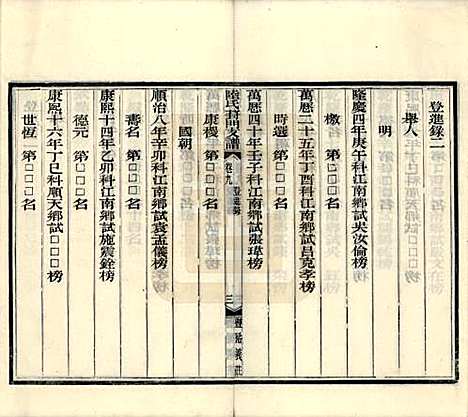 登進錄二
舉人
明
隆慶四年庚午科江南鄉試吳汝倫榜
檄　第□□□名
萬曆二十五年丁酉科江南鄉試昌克孝榜
時選　第□□□名
萬曆四十年壬子科江南鄉試張瑋榜
康稷　第□□□名
陸氏葑門支譜　卷九　登進錄　三　豐裕義莊
國朝
順治八年辛卯科江南鄉試袁孟儀榜
壽名　第□□□名
康熙十四年乙卯科江南鄉試施震銓榜
德元　第□□□名
康熙十六年丁巳科順天鄉試□□□榜
世恆　第□□□名